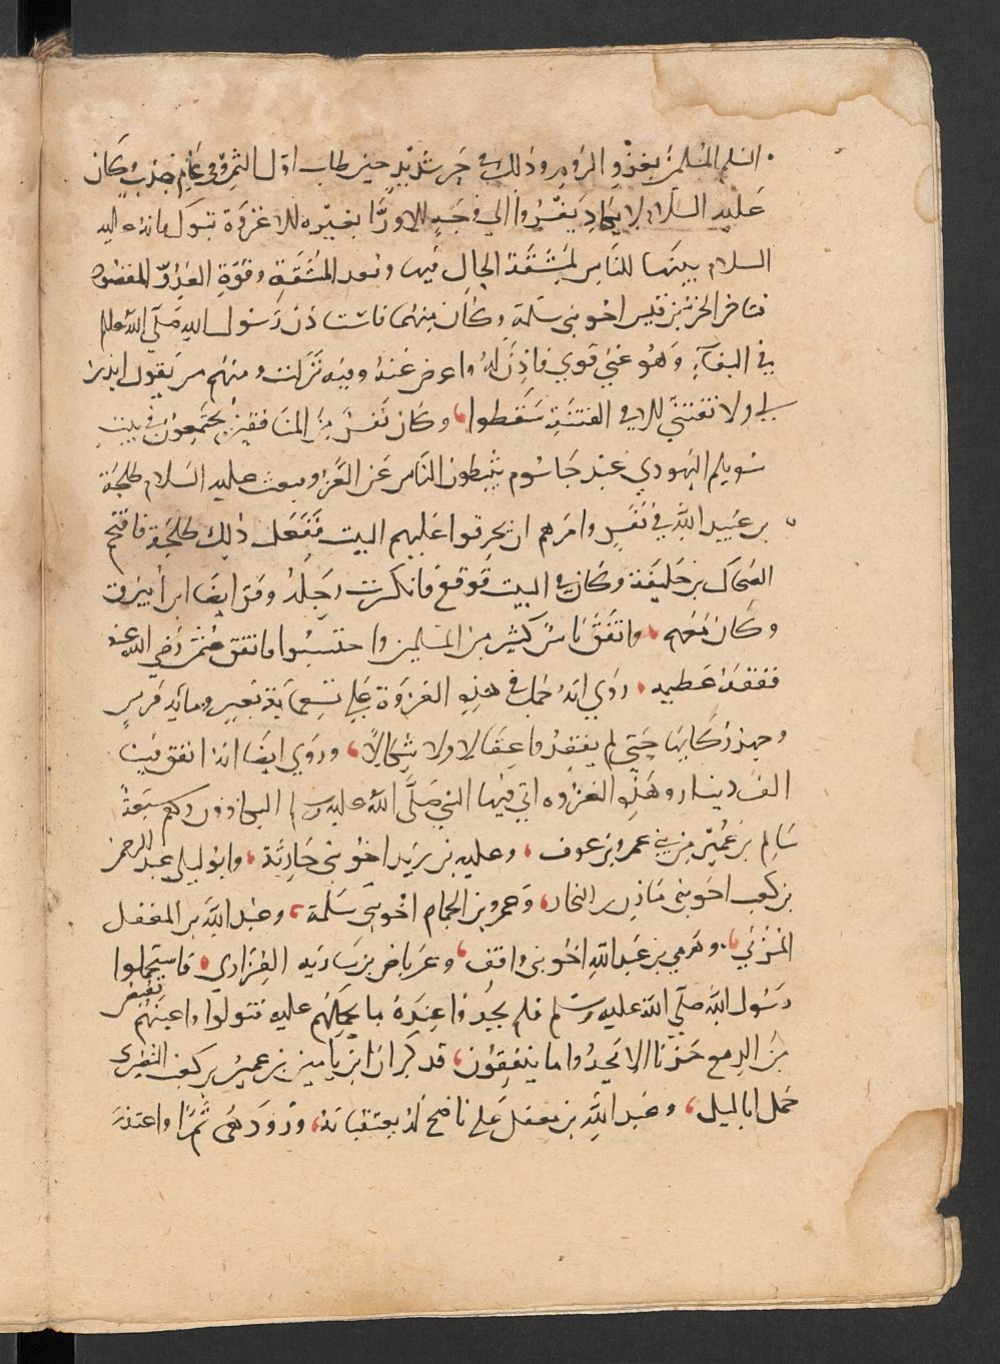 السلم المسلمين بغزو الروم وذلك في حر شديد حين طاب اول الثمر وفي عام جدب وكان
عليه السلام لا يكاد يغزوا الى وجه الا ورا بغيره الا غزوة تبوك فانه عليه
السلام بينها للناس لمشقة الحال فيها وبعد المشقة وقوة العدو المقصود
فتاخر الجد بن قيس اخو بني سلمة وكان متهما فاستاذن رسول الله صلى الله عليه وسلم
في البقآء وهو غني قوي فاذن له واعرض عنه وفيه نزلت ومنهم من يقول ايذن
لي ولا تفتني الا في الفتنة سقطوا، وكان نفر من المنافقين يجتمعون في بيت
سويلم اليهودي عند جاسوم يثبطون الناس عن الغزو وبعث عليه السلام طلحة
بن عبيد الله في نفر وامرهم ان يحرقوا عليهم البيت ففعل ذلك طلحة فاقتحم
الضحاك بن خليفة وكان في البيت فوقع فانكسرت رجله وفر ايضا ابن ابيرق
وكان معهم، واتفق ناس كثير من المسلمين واحتسبوا فانفق عثمن رضي الله عنه
نفقة عظيمه، روي انه حمل في هذه الغزوة على تسعماية بعير ومائه فرس
وجهز ركابها حتى لم يفقدوا عقالا ولا شكالا، وروي ايضا انه انفق فيها
الف دينار وهذه الغزوه اتى فيها النبي صلى الله عليه وسلم البكاؤون وهم سبعة
سالم بن عمير من بني عمرو بن عوف، وعليه بن زيد اخو بني حارثة، وابو ليلى عبد الرحمن
بن كعب اخو بني مازن بن النجار، وعمرو بن الحمام اخو بني سلمة، وعبد الله بن المغفل
المزني، وهرمي بن عبد الله اخو بني واقف، وعرباض بن سارية الفزاري، فاستحملوا
رسول الله صلى الله عليه وسلم فلم يجدوا عنده ما يحملهم عليه فتولوا واعينهم تفيض
من الدمع حزنا الا يجدوا ما ينفقون، قد ذكر ان ابن يامين بن عمير بن كعب النضري
حمل ابا ليلى، وعبد الله بن مغفل على ناضح له يعتقبانه، وزودهما تمرا واعتذر